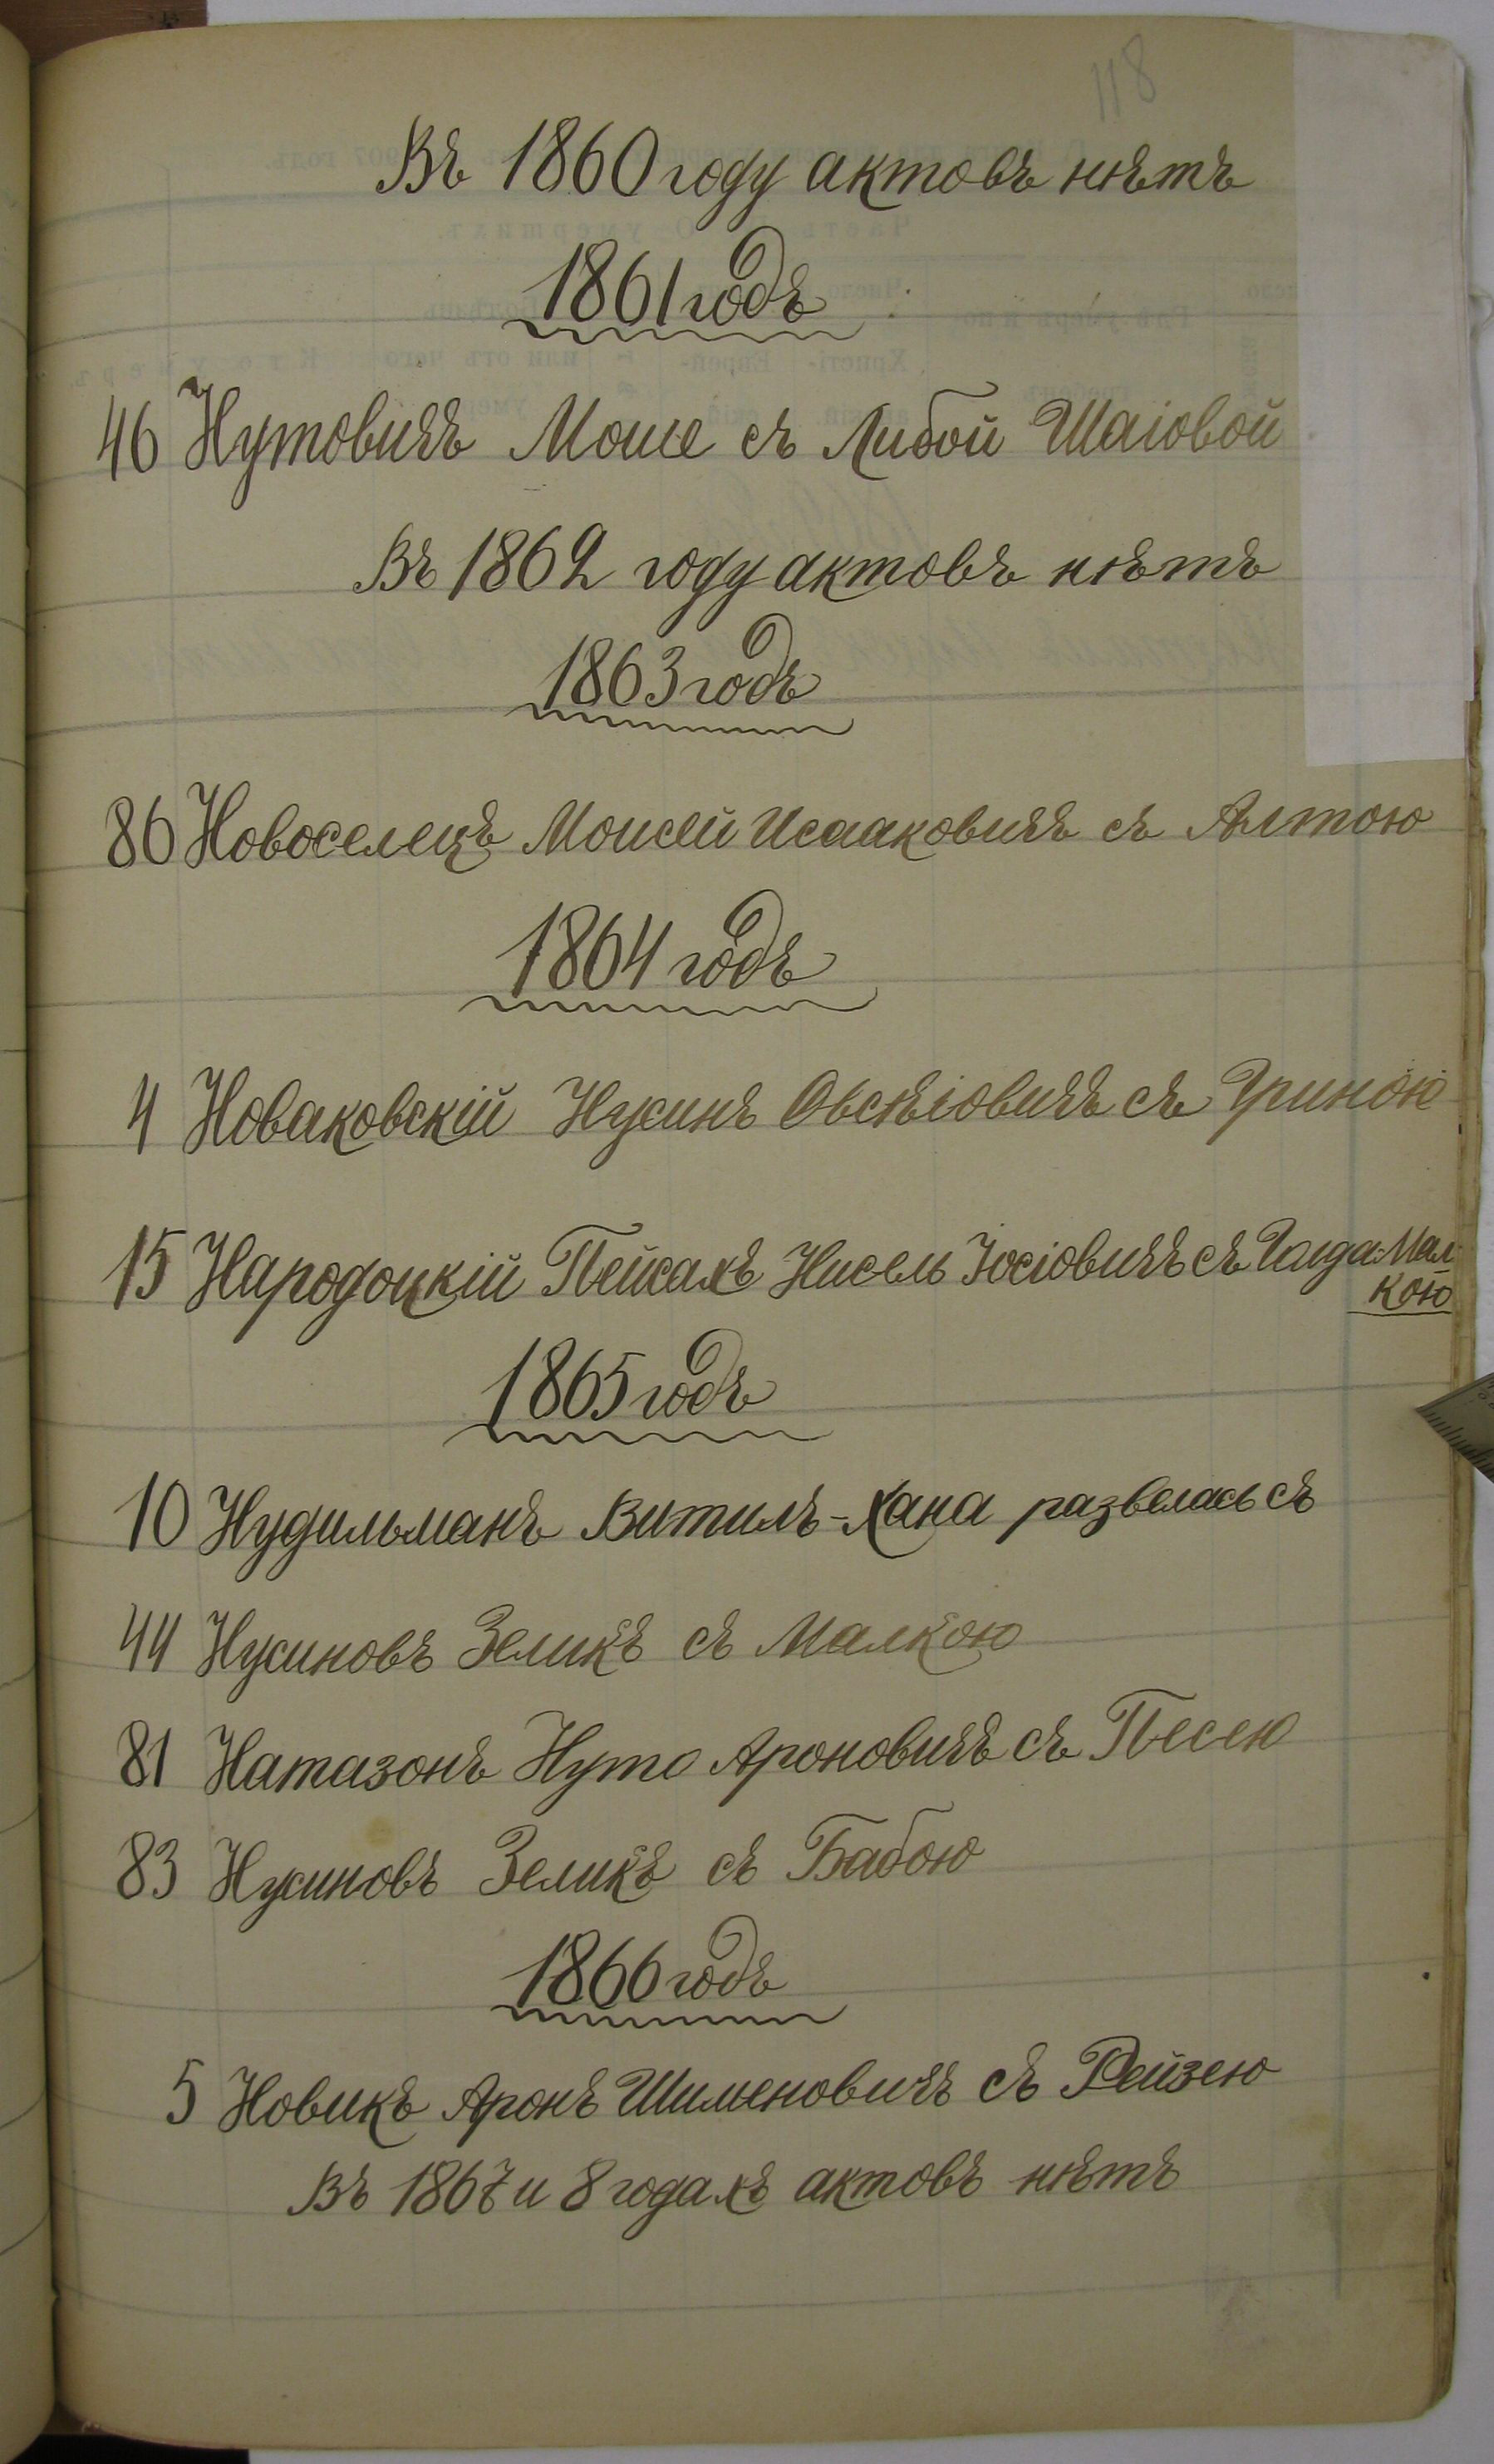 118
Въ 1860 году актовъ нѣтъ
1861 годъ
46 Нутовичъ Моше съ Либой Шаіовой
Въ 1862 году актовъ нѣтъ
1863 годъ
86 Новоселецъ Моисей Исааковичъ съ Алтою
1864 годъ
4 Новаковскій Нусинъ Овсѣіовичъ съ Фриною
15 Народоцкій Пейсахъ Нисель Іосіовичъ съ Мал-
кою
1865 годъ
10 Нудильманъ Витиль-Хана развелась съ
44 Нусиновъ Зеликъ съ Малкою
81 Натазонъ Нуто Ароновичъ съ Песею
83 Нусиновъ Зеликъ съ Бабою
1866 годъ
5 Новикъ Аронъ Шименовичъ съ Рейзею
Въ 1867 и 8 годахъ актовъ нѣтъ